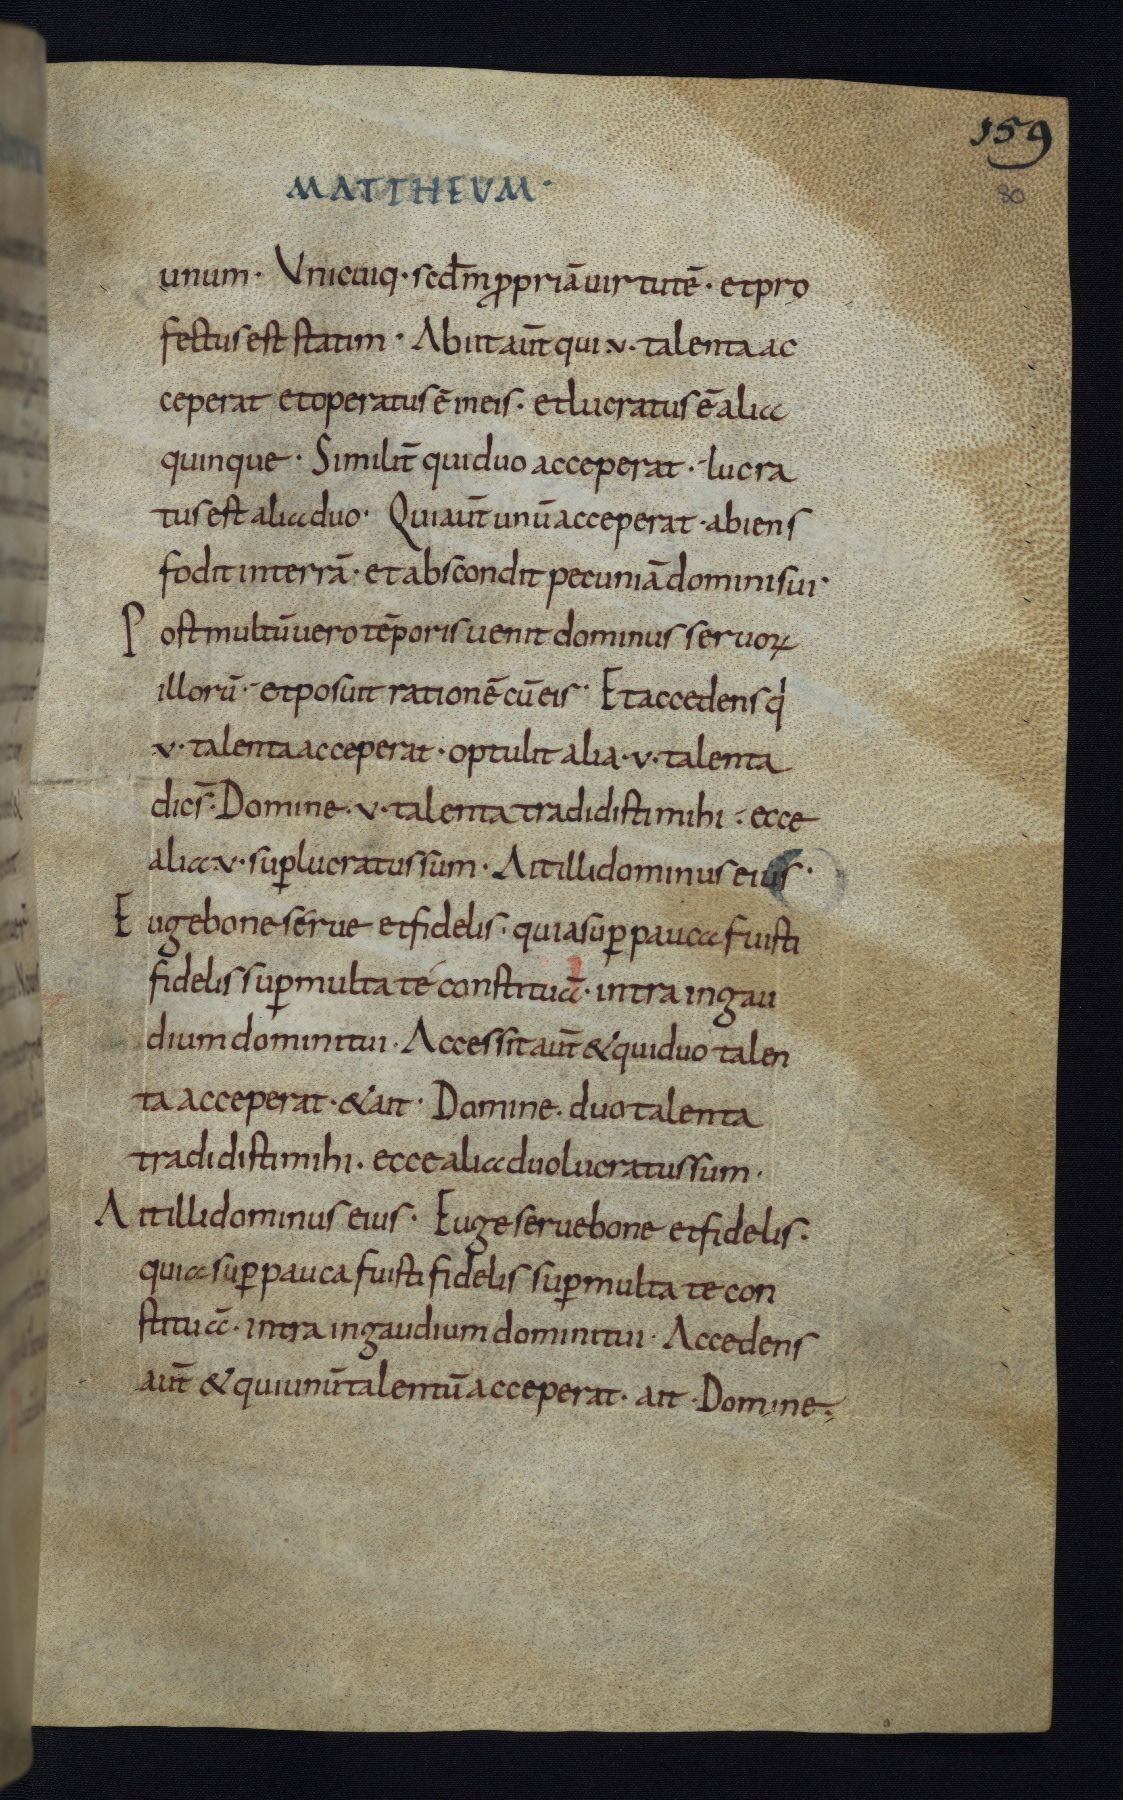 159
80
MATTHEVM·
unum· Vnicuiq·scdm̄ ꝓpriā uirtutē· et pro
fectus est statim· Abiit aūt qui·v· talenta ac
ceperat et operatus ē in eis· et lucratus ē alia
quinque· Similit̄ qui duo acceperat· lucra
tus est alia duo· Qui aūt unū acceperat· abiens
fodit in terrā· et abscondit pecuniā domini sui·
Post multū uero tēporis uenit dominus seruoꝝ
illorū· et posuit rationē cū eis· Et accedens qͥ
v· talenta acceperat· optulit alia·v· talenta
dicēs· Domine·v· talenta tradidisti mihi· ecce
alia·v· suꝑlucratus sum· Ait illi dominus eius·
Euge bone serue et fidelis· quia suꝑ pauca fuisti
fidelis suꝑ multa te constituā· intra in gau
dium domini tui· Accessit aūt & qui duo talen
ta acceperat· & ait· Domine· duo talenta
tradidisti mihi· ecce alia duo lucratus sum·
Ait illi dominus eius· Euge serue bone et fidelis·
quia suꝑ pauca fuisti fidelis suꝑ multa te con
stituā· intra in gaudium domini tui· Accedens
aūt & qui unū talentū acceperat· ait· Domine·